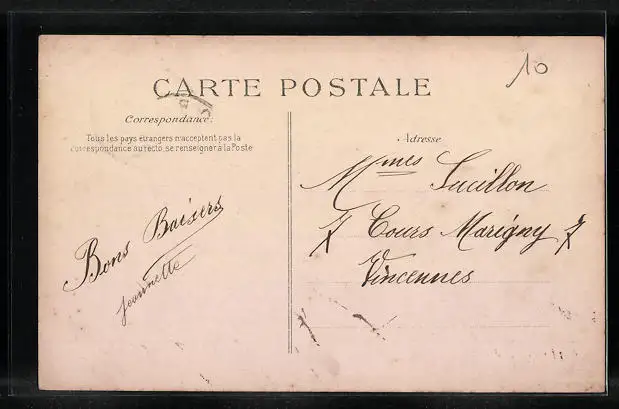 10
CARTE POSTALE
Correspondance:
Tous les pays étrangers n'acceptent pas la
correspondance au recto, se renseigner à la Poste
Bons Baisers
Jeannette
Adresse
Mmes Lucillon
7 Cours Marigny 7
Vincennes